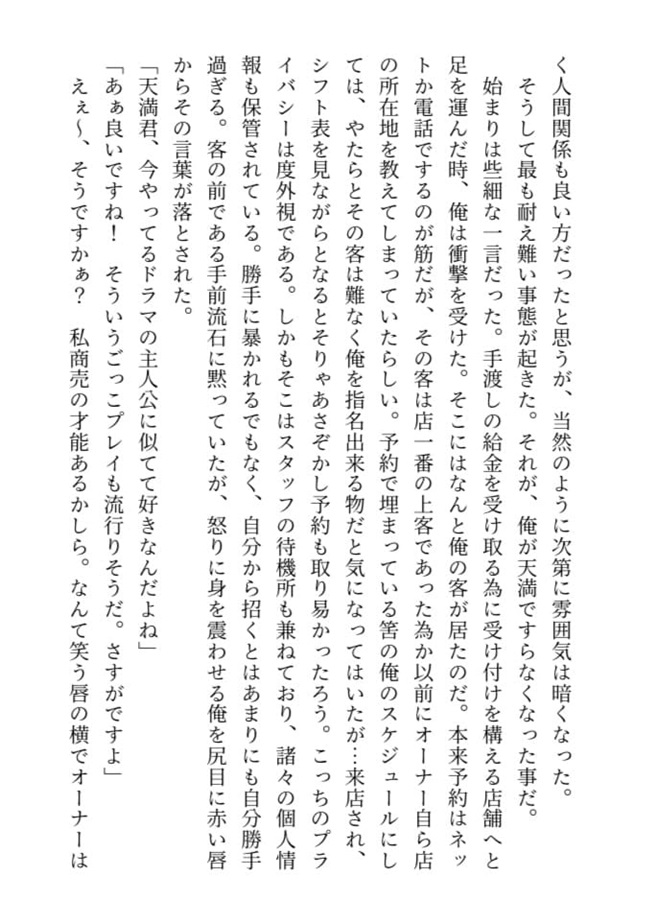 く人間関係も良い方だったと思うが、当然のように次第に雰囲気は暗くなった。
そうして最も耐え難い事態が起きた。それが、俺が天満ですらなくなった事だ。
始まりは些細な一言だった。手渡しの給金を受け取る為に受け付けを構える店舗へと
足を運んだ時、俺は衝撃を受けた。そこにはなんと俺の客が居たのだ。本来予約はネッ
トか電話でするのが筋だが、その客は店一番の上客であった為か以前にオーナー自ら店
の所在地を教えてしまっていたらしい。予約で埋まっている筈の俺のスケジュールにし
ては、やたらとその客は難なく俺を指名出来る物だと気になってはいたが…来店され、
シフト表を見ながらとなるとそりゃあさぞかし予約も取り易かったろう。こっちのプラ
イバシーは度外視である。しかもそこはスタッフの待機所も兼ねており、諸々の個人情
報も保管されている。勝手に暴かれるでもなく、自分から招くとはあまりにも自分勝手
過ぎる。客の前である手前流石に黙っていたが、怒りに身を震わせる俺を尻目に赤い唇
からその言葉が落とされた。
「天満君、今やってるドラマの主人公に似てて好きなんだよね」
「あぁ良いですね！　そういうごっこプレイも流行りそうだ。さすがですよ」
えぇ〜、そうですかぁ？　私商売の才能あるかしら。なんて笑う唇の横でオーナーは